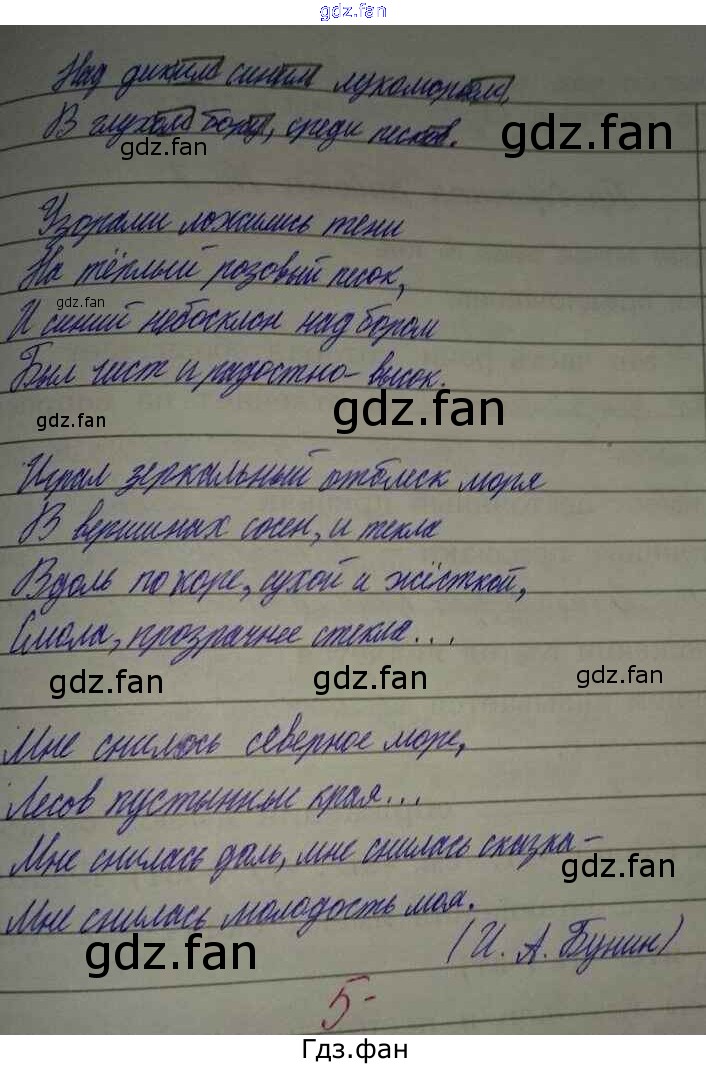 gdz.fan
Над диким синим лукоморьем,
В глухом бору, среди песков.
gdz.fan
gdz.fan
Узорами ложились тени
На тёплый розовый песок,
gdz.fan
И синий небосклон над бором
Был чист и радостно-высок.
gdz.fan
gdz.fan
Играл зеркальный отблеск моря
В вершинах сосен, и текла
Вдоль по коре, сухой и жёсткой,
Смола, прозрачнее стекла...
gdz.fan
gdz.fan
gdz.fan
Мне снилось северное море,
Лесов пустынные края...
Мне снилась даль, мне снилась сказка-
gdz.fan
Мне снилась молодость моя.
(И. А. Бунин)
gdz.fan
gdz.fan
5-
Гдз.фан